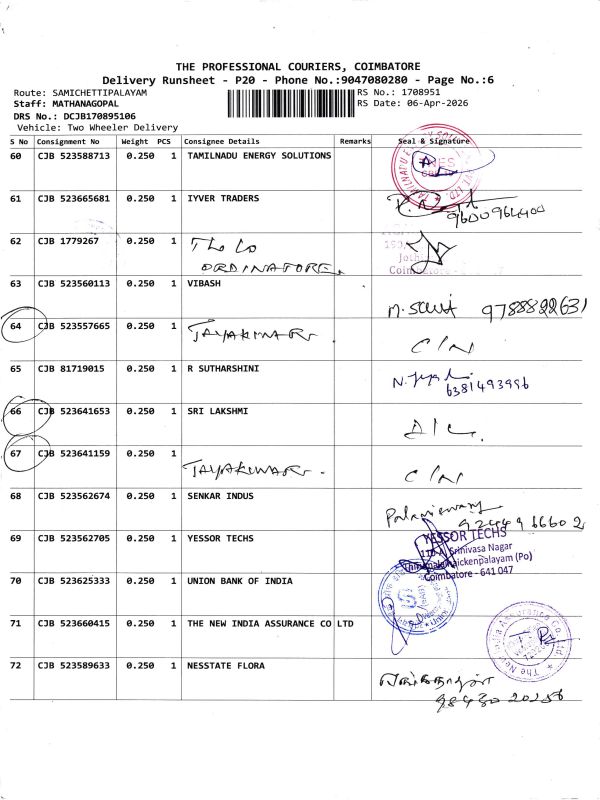 THE PROFESSIONAL COURIERS, COIMBATORE
Delivery Runsheet - P20 - Phone No.:9047080280 - Page No.:6
Route: SAMICHETTIPALAYAM RS No.: 1708951
Staff: MATHANAGOPAL RS Date: 06-Apr-2026
DRS No.: DCJB170895106
Vehicle: Two Wheeler Delivery
S No Consignment No Weight PCS Consignee Details Remarks Seal & Signature
60 CJB 523588713 0.250 1 TAMILNADU ENERGY SOLUTIONS
61 CJB 523665681 0.250 1 IYVER TRADERS
9600964400
62 CJB 1779267 0.250 1 The Co
ORDINATORE.
63 CJB 523560113 0.250 1 VIBASH
9788822631
64 CJB 523557665 0.250 1 JAYAKUMAR
C/N
65 CJB 81719015 0.250 1 R SUTHARSHINI
6381493996
66 CJB 523641653 0.250 1 SRI LAKSHMI
D/L.
67 CJB 523641159 0.250 1 JAYAKUMAR.
C/N
68 CJB 523562674 0.250 1 SENKAR INDUS
69 CJB 523562705 0.250 1 YESSOR TECHS YESSOR TECHS
Srinivasa Nagar
(Po)
Coimbatore - 641 047
70 CJB 523625333 0.250 1 UNION BANK OF INDIA
71 CJB 523660415 0.250 1 THE NEW INDIA ASSURANCE CO LTD
The New India Assurance Co. Ltd.
72 CJB 523589633 0.250 1 NESSTATE FLORA